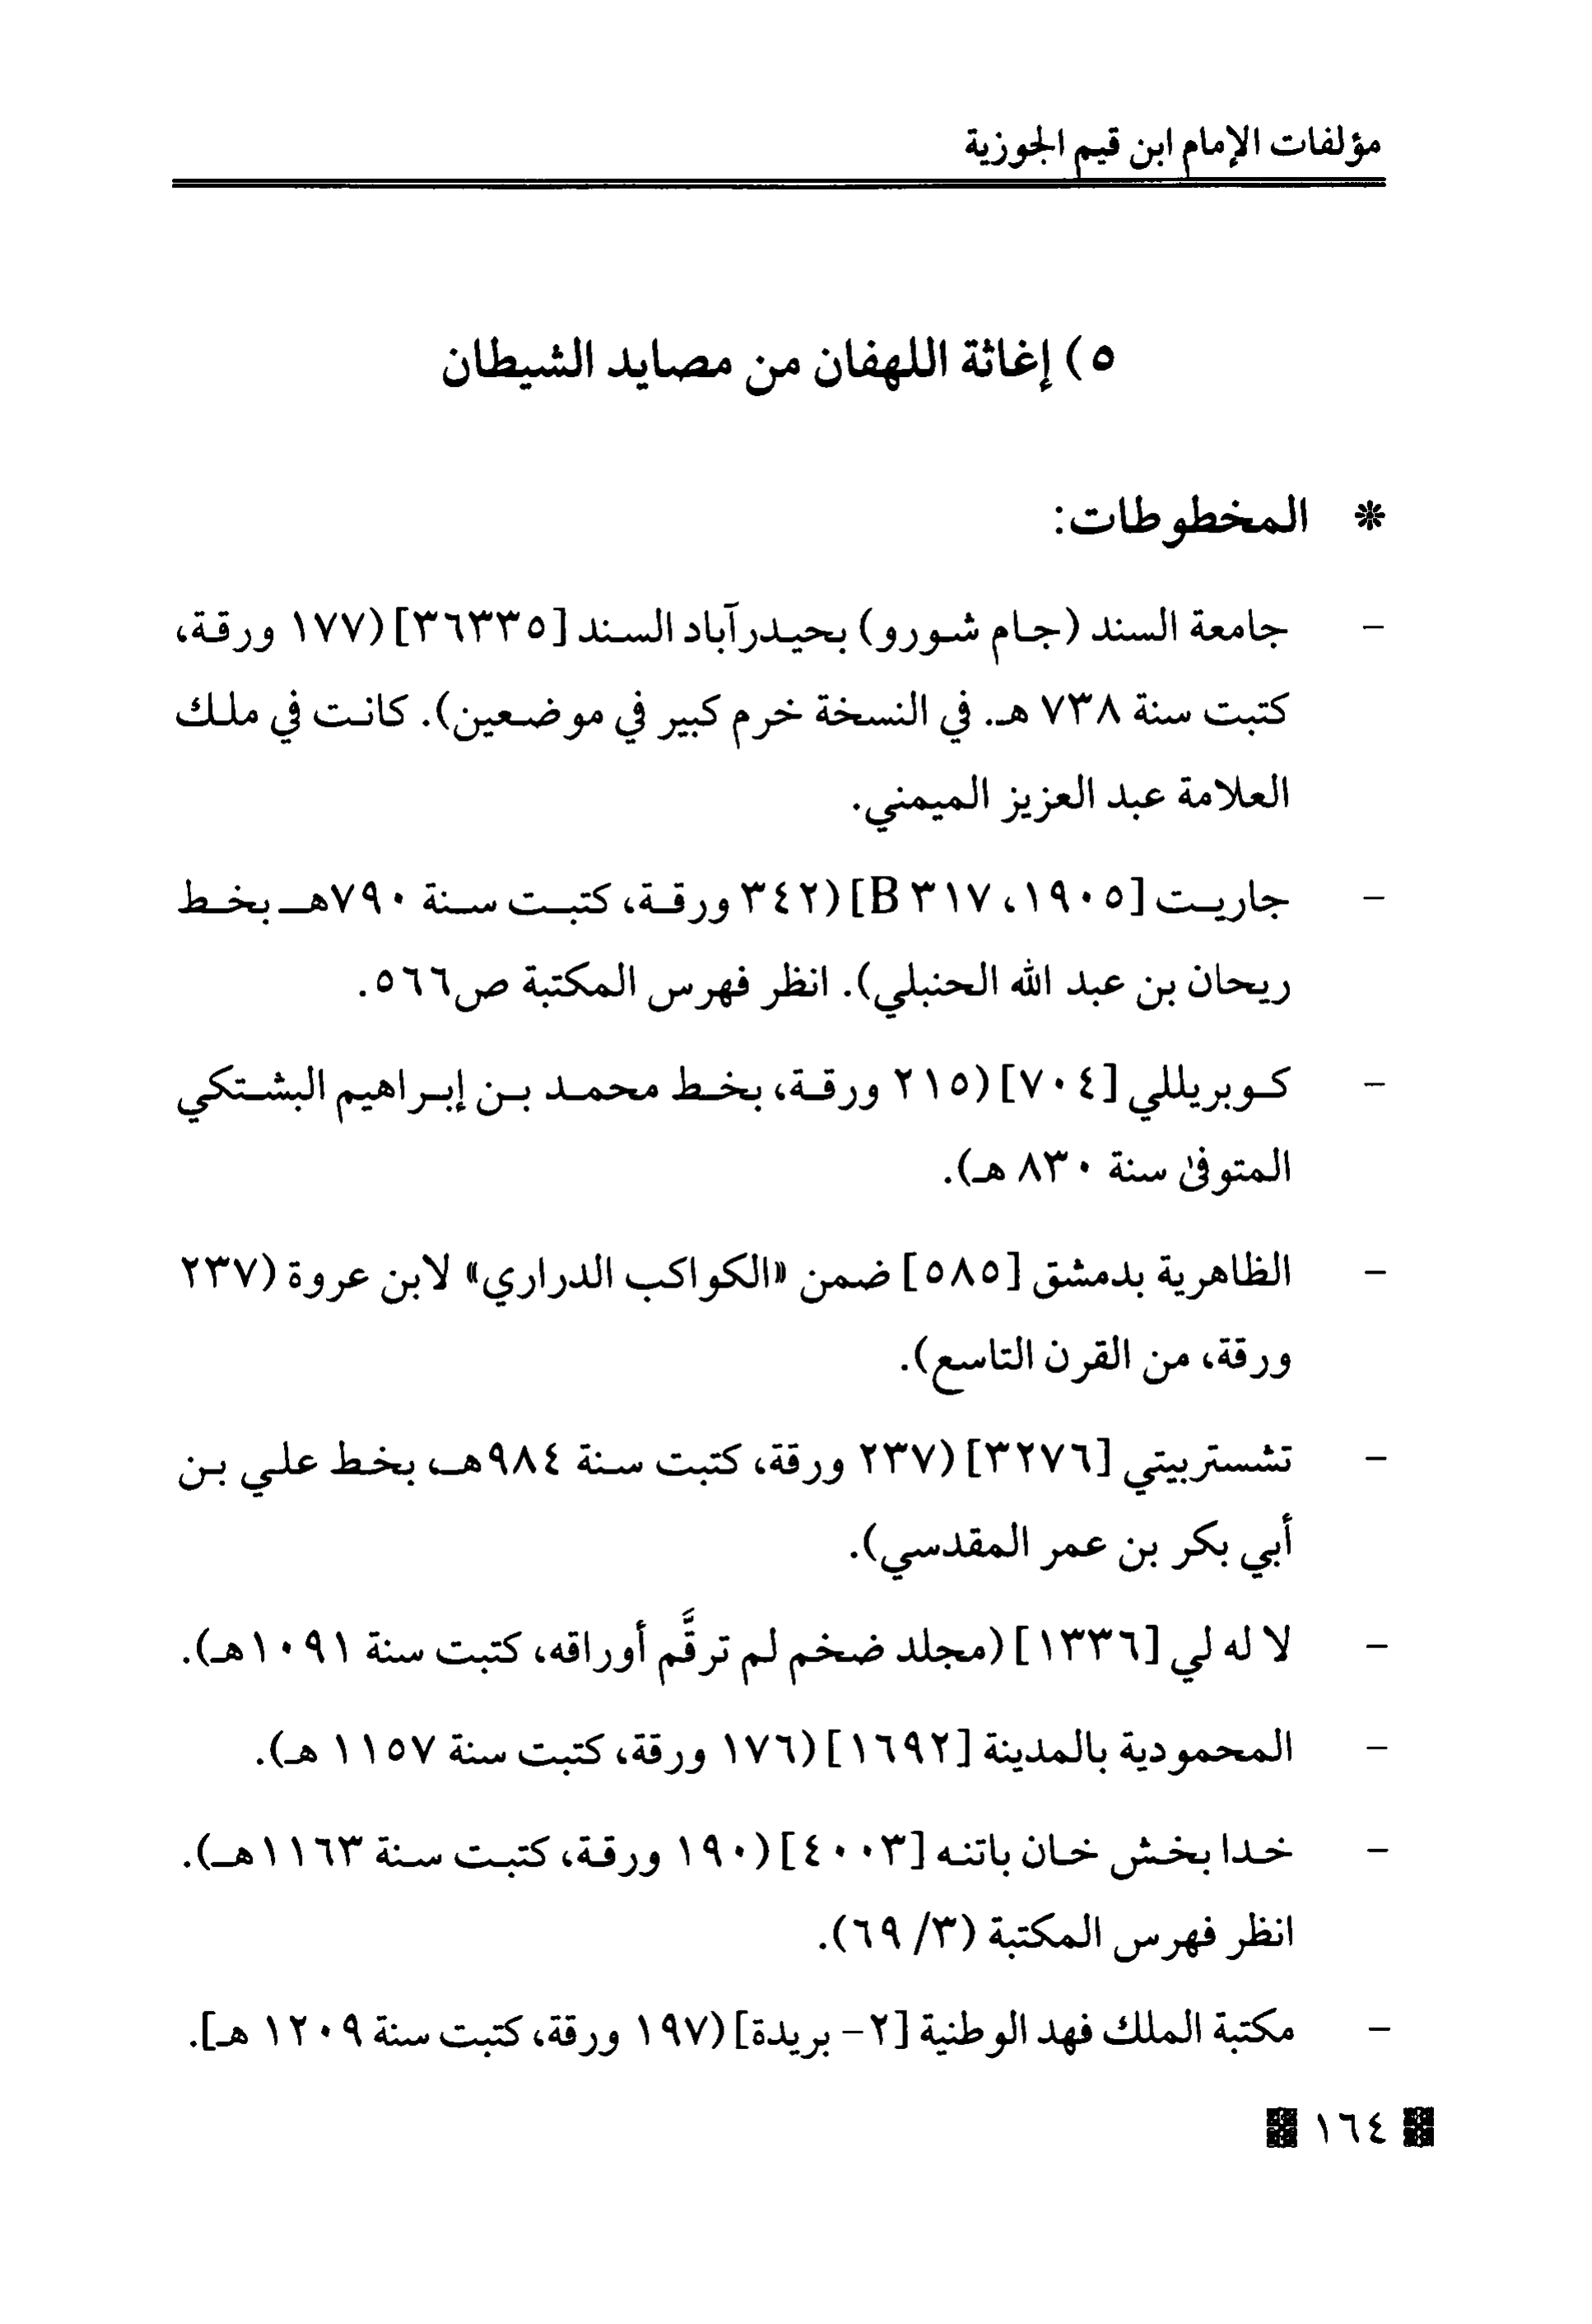 مؤلفات الإمام ابن قيم الجوزية
٥) إغاثة اللهفان من مصايد الشيطان
* المخطوطات:
- جامعة السند (جام شورو) بحيدرآباد السند [٣٦٣٣٥] (١٧٧ ورقة،
كتبت سنة ٧٣٨ هـ. في النسخة خرم كبير في موضعين). كانت في ملك
العلامة عبد العزيز الميمني.
- جاريت [١٩٠٥، ٣١٧ B] (٣٤٢ ورقة، كتبت سنة ٧٩٠هـ بخط
ريحان بن عبد الله الحنبلي). انظر فهرس المكتبة ص٥٦٦.
- كوبريللي [٧٠٤] (٢١٥ ورقة، بخط محمد بن إبراهيم البشتكي
المتوفىٰ سنة ٨٣٠ هـ).
- الظاهرية بدمشق [٥٨٥] ضمن «الكواكب الدراري» لابن عروة (٢٣٧
ورقة، من القرن التاسع).
- تشستربيتي [٣٢٧٦] (٢٣٧ ورقة، كتبت سنة ٩٨٤هـ، بخط علي بن
أبي بكر بن عمر المقدسي).
- لا له لي [١٣٣٦] (مجلد ضخم لم ترقَّم أوراقه، كتبت سنة ١٠٩١هـ).
- المحمودية بالمدينة [١٦٩٢] (١٧٦ ورقة، كتبت سنة ١١٥٧ هـ).
- خدا بخش خان باتنه [٤٠٠٣] (١٩٠ ورقة، كتبت سنة ١١٦٣هـ).
انظر فهرس المكتبة (٣/ ٦٩).
- مكتبة الملك فهد الوطنية [٢- بريدة] (١٩٧ ورقة، كتبت سنة ١٢٠٩ هـ].
١٦٤